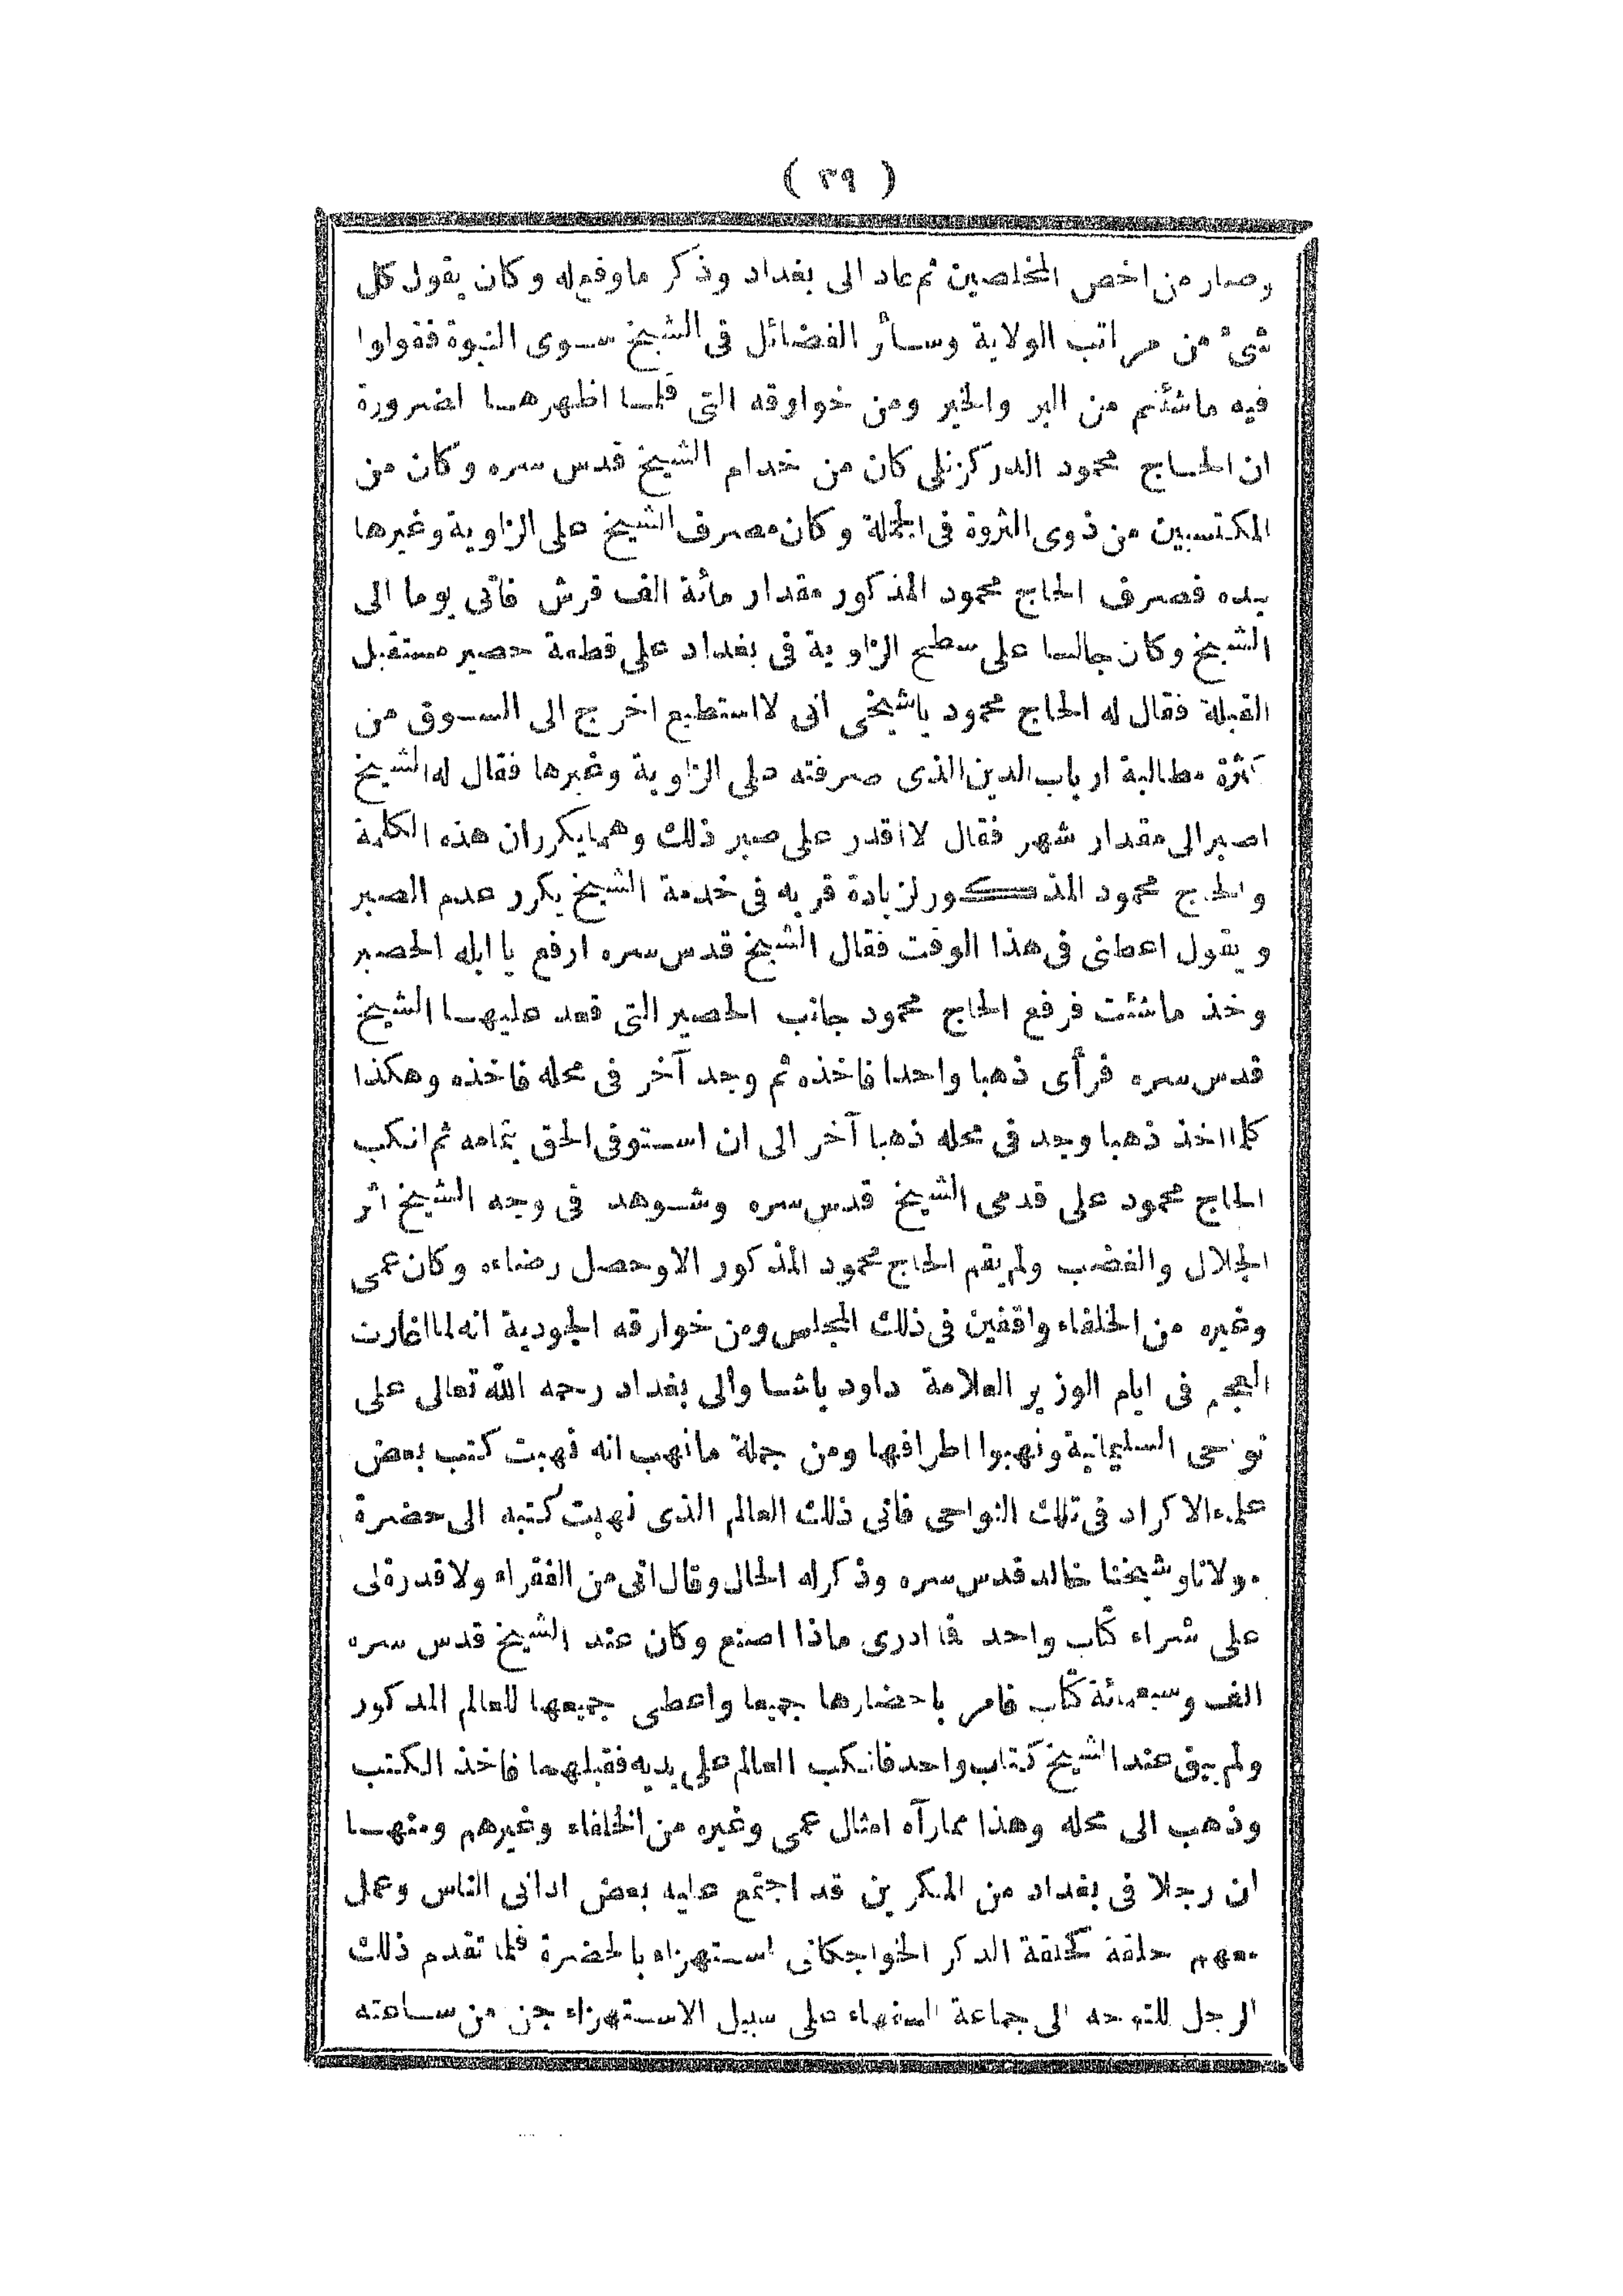 ( ٣٩ )
وصار من اخص المخلصين ثم عاد الى بغداد وذكر ماوقع له وكان يقول كل
شئ من مراتب الولاية وسائر الفضائل فى الشيخ سوى النبوة فقولوا
فيه ماشئتم من البر والخير ومن خوارقه التى قلما اظهرها لضرورة
ان الحاج محمود الدركزنلى كان من خدام الشيخ قدس سره وكان من
المكتسبين من ذوى الثروة فى الجملة وكان مصرف الشيخ على الزاوية وغيرها
بيده فصرف الحاج محمود المذكور مقدار مائة الف قرش فاتى يوما الى
الشيخ وكان جالسا على سطح الزاوية فى بغداد على قطعة حصير مستقبل
القبلة فقال له الحاج محمود ياشيخى انى لااستطيع اخرج الى السوق من
كثرة مطالبة ارباب الدين الذى صرفته على الزاوية وغيرها فقال له الشيخ
اصبر الى مقدار شهر فقال لااقدر على صبر ذلك وهما يكرران هذه الكلمة
والحاج محمود المذكور لزيادة قربه فى خدمة الشيخ يكرر عدم الصبر
ويقول اعطنى فى هذا الوقت فقال الشيخ قدس سره ارفع يا ابله الحصير
وخذ ماشئت فرفع الحاج محمود جانب الحصير التى قعد عليها الشيخ
قدس سره فرأى ذهبا واحدا فاخذه ثم وجد آخر فى محله فاخذه وهكذا
كلما اخذ ذهبا وجد فى محله ذهبا آخر الى ان استوفى الحق بتمامه ثم انكب
الحاج محمود على قدمى الشيخ قدس سره وشوهد فى وجه الشيخ اثر
الجلال والغضب ولم يقم الحاج محمود المذكور الا وحصل رضاءه وكان عمى
وغيره من الخلفاء واقفين فى ذلك المجلس ومن خوارقه الجودية انه لما اغارت
العجم فى ايام الوزير العلامة داود باشا والى بغداد رحمه الله تعالى على
نواحى السليمانية ونهبوا اطرافها ومن جملة مانهب انه نهبت كتب بعض
علماء الاكراد فى تلك النواحى فاتى ذلك العالم الذى نهبت كتبه الى حضرة
مولانا وشيخنا خالد قدس سره وذكر له الحال وقال انى من الفقراء ولا قدرة لى
على شراء كتاب واحد فما ادرى ماذا اصنع وكان عند الشيخ قدس سره
الف وسبعمائة كتاب فامر باحضارها جميعا واعطى جميعها للعالم المذكور
ولم يبق عند الشيخ كتاب واحد فانكب العالم على يديه فقبلهما فاخذ الكتب
وذهب الى محله وهذا مما رآه امثال عمى وغيره من الخلفاء وغيرهم ومنها
ان رجلا فى بغداد من المنكرين قد اجتمع عليه بعض ادانى الناس وعمل
معهم حلقة كحلقة الذكر الخواجكانى استهزاء بالحضرة فلما تقدم ذلك
الرجل للتوجه الى جماعة السفهاء على سبيل الاستهزاء جن من ساعته